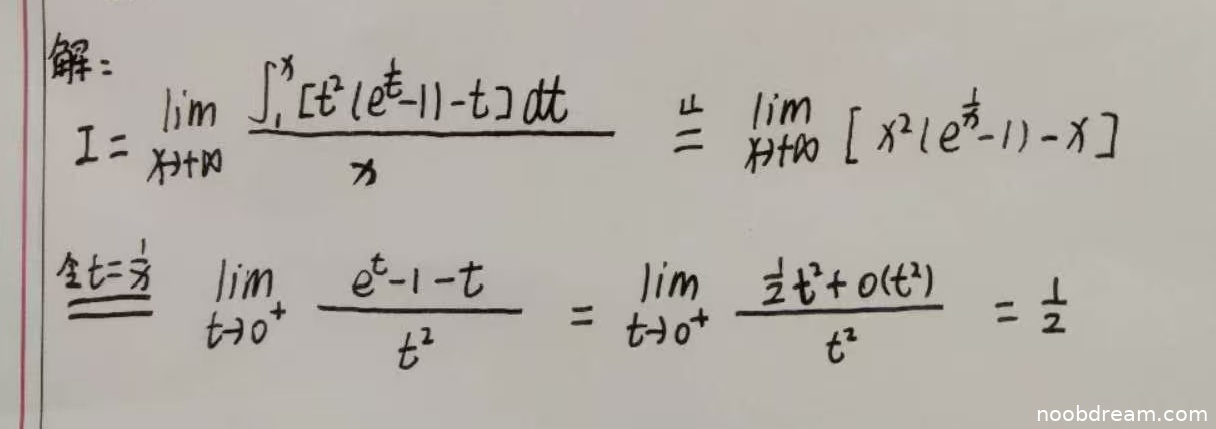 解:
I = lim x→+∞ ∫₁ˣ [t²(e^(1/t)-1)-t] dt / x  洛=  lim x→+∞ [x²(e^(1/x)-1)-x]
令t=1/x  lim t→0⁺ (e^t-1-t)/t² = lim t→0⁺ (½t²+o(t²))/t² = 1/2
noobdream.com